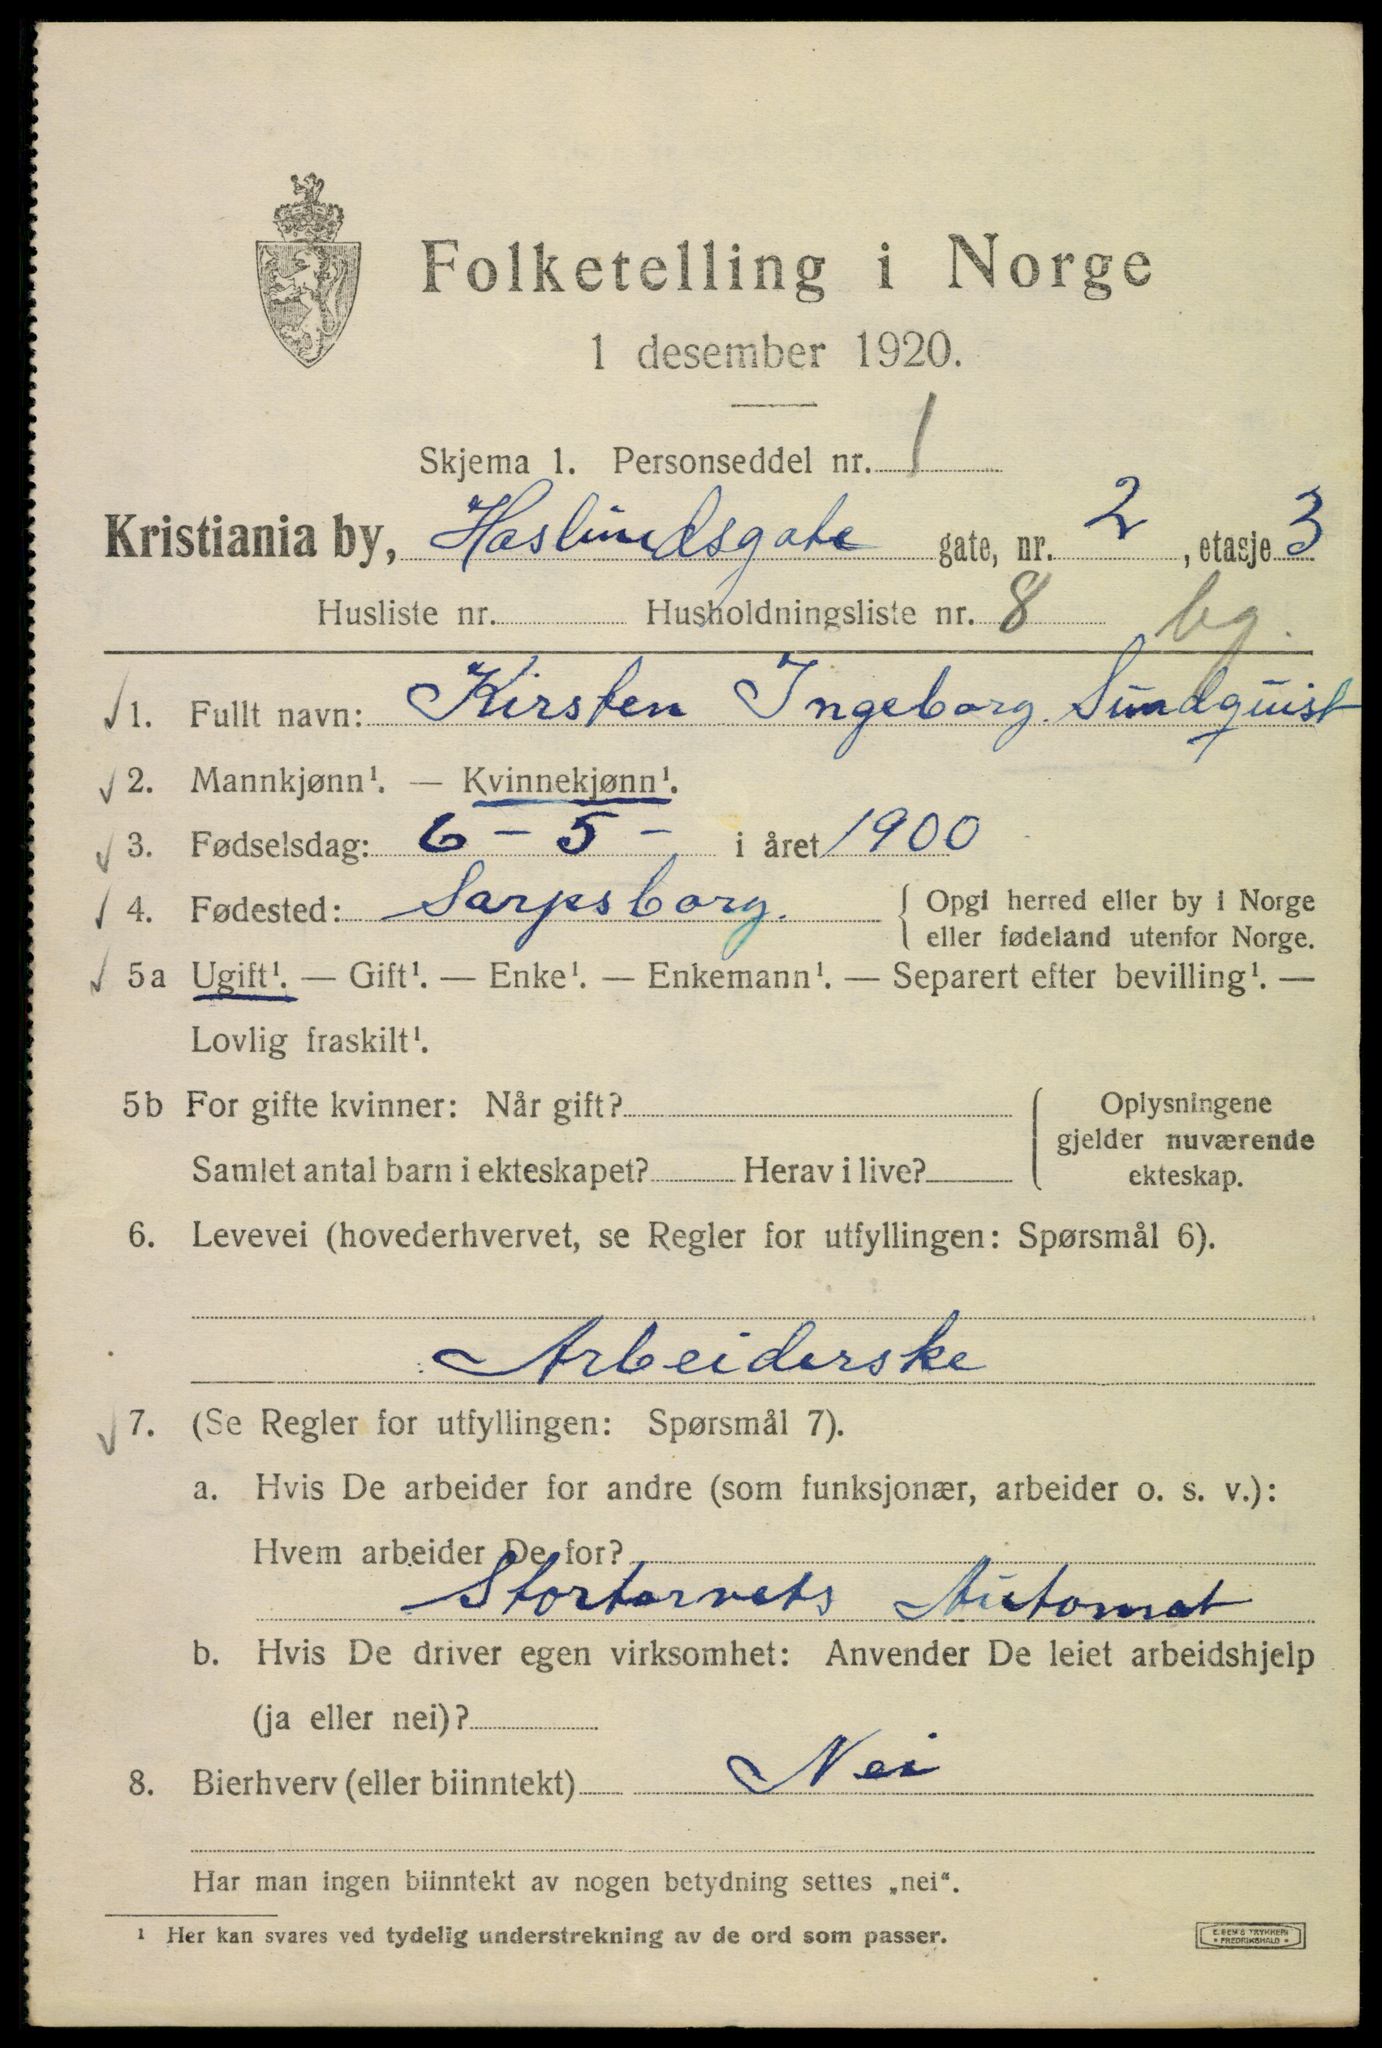 Folketelling i Norge
1 desember 1920.
Skjema 1. Personseddel nr. 1
Kristiania by, Haslundsgate gate, nr. 2, etasje 3
Husliste nr. Husholdningsliste nr. 8 bg.
1. Fullt navn: Kirsten Ingeborg Sundquist
2. Mannkjønn¹. — Kvinnekjønn¹.
3. Fødselsdag: 6 - 5 - i året 1900
4. Fødested: Sarpsborg. { Opgi herred eller by i Norge
eller fødeland utenfor Norge.
5a Ugift¹. — Gift¹. — Enke¹. — Enkemann¹. — Separert efter bevilling¹. —
Lovlig fraskilt¹.
5b For gifte kvinner: Når gift? { Oplysningene
gjelder nuværende
Samlet antal barn i ekteskapet? Herav i live? ekteskap.
6. Levevei (hovederhvervet, se Regler for utfyllingen: Spørsmål 6).
Arbeiderske
7. (Se Regler for utfyllingen: Spørsmål 7).
a. Hvis De arbeider for andre (som funksjonær, arbeider o. s. v.):
Hvem arbeider De for?
Stortorvets Automat
b. Hvis De driver egen virksomhet: Anvender De leiet arbeidshjelp
(ja eller nei)?
8. Bierhverv (eller biinntekt) Nei
Har man ingen biinntekt av nogen betydning settes „nei“.
¹ Her kan svares ved tydelig understrekning av de ord som passer.
E. SEM'S TRYKKERI
• FREDRIKSHALD •